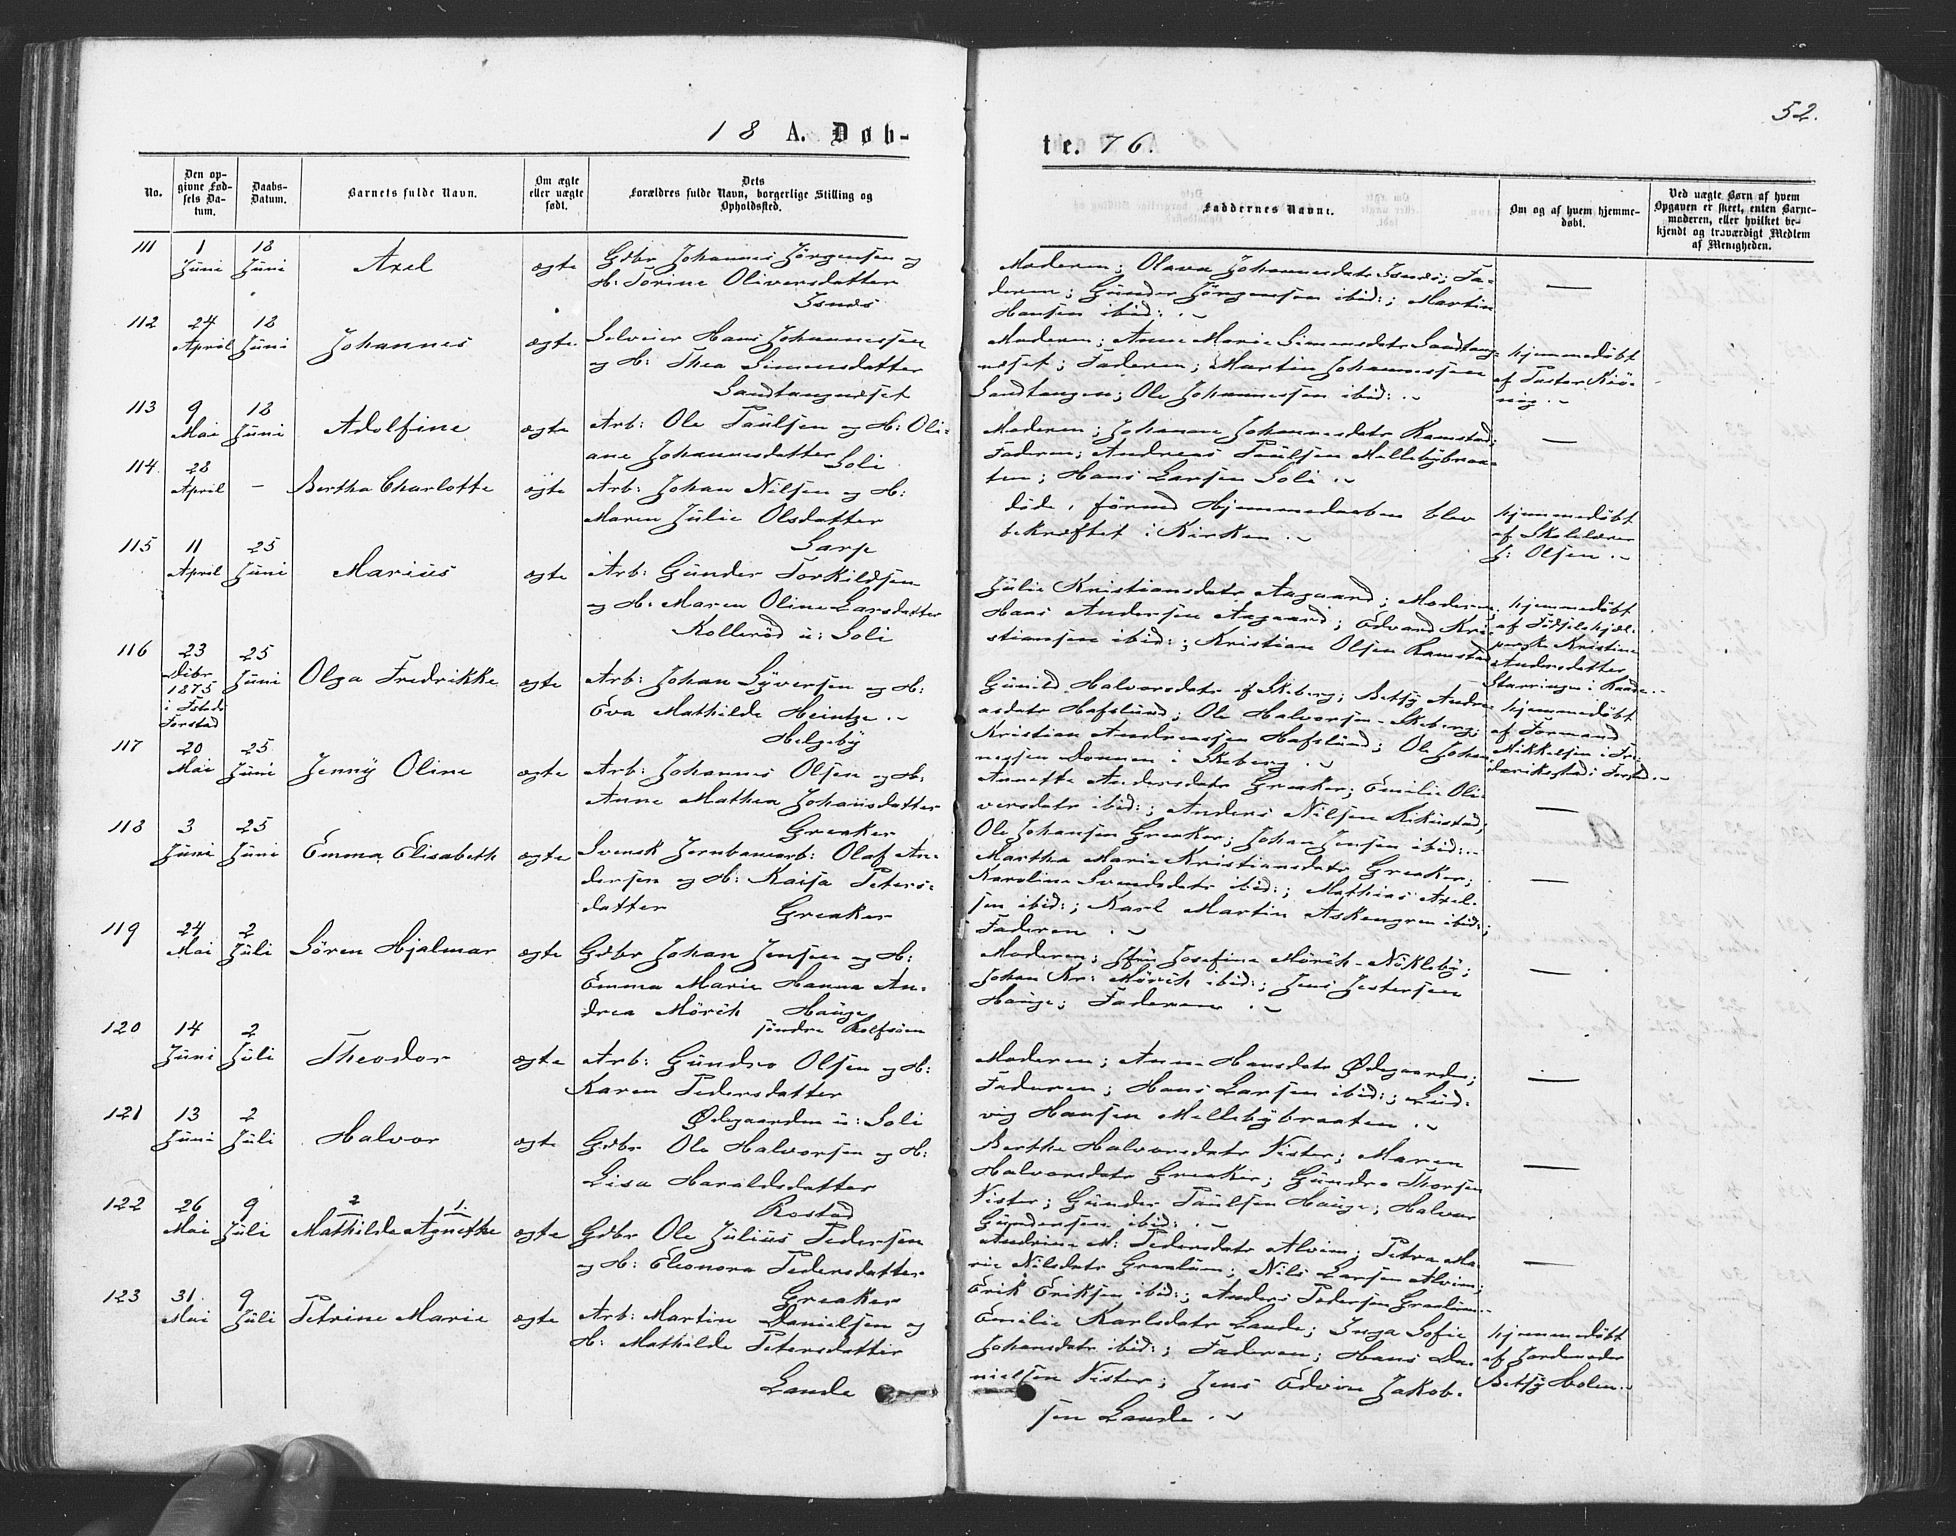 52.
18 A. Døb-
te. 76.
No.
Den op-
givne Fød-
sels Da-
tum.
Daabs-
Datum.
Barnets fulde Navn.
Om ægte
eller uægte
født.
Dets
Forældres fulde Navn, borgerlige Stilling og
Opholdssted.
Faddernes Navne.
Om og af hvem hjemme-
døbt.
Ved uægte Børn af hvem
Opgaven er skeet, enten Barne-
moderen, eller hvilket be-
kjendt og troværdigt Medlem
af Menigheden.
111
1
Juni
18
Juni
Axel
ægte
Gdbr Johannes Jørgensen og
H: Torine Oliversdatter
Isnæs
Moderen; Olava Johannesdatr Isnæs; Fa-
deren; Gunder Jørgensen ibid:; Martin
Hansen ibid:
—
112
24
April
18
Juni
Johannes
ægte
Selveier Hans Johannessen
og H: Thea Simensdatter
Sandtangnæset
Moderen; Anne Marie Simensdatr Sandtang-
næset; Faderen; Martin Johannessen
Sandtangen; Ole Johannessen ibid:
hjemmedøbt
af Pastor Kiø-
nig
113
9
Mai
18
Juni
Adolfine
ægte
Arb: Ole Paulsen og H: Oli-
ane Johannesdatter
Soli
Moderen; Johanne Johannesdatr Ramstad;
Faderen; Andreas Paulsen Mellebybraa-
ten; Hans Larsen Soli
—
114
28
April
–
Bertha Charlotte
ægte
Arb: Johan Nilsen og H:
Maren Julie Olsdatter
Sarp
døde, førend Hjemmedaaben blev
bekræftet i Kirken
hjemmedøbt
af Skolelærer
J: Olsen
115
11
April
25
Juni
Marius
ægte
Arb: Gunder Torkildsen
og H: Maren Oline Larsdatter
Kollerød u: Soli
Julie Kristiansdatr Aagaard; Moderen;
Hans Andersen Aagaard; Edvard Kri-
stiansen ibid:; Kristian Olsen Ramstad
hjemmedøbt
af Fødselshjæl-
perske Kristine
Andersdatter
Starringen i Raade
116
23
Dcbr
1875
i Fstads
Forstad
25
Juni
Olga Fredrikke
ægte
Arb: Johan Syversen og H:
Eva Mathilde Heintze
Helgeby
Gunild Halvorsdatr af Skeberg; Betsy Andre-
asdatr Hafslund; Ole Halvorsen Skeberg;
Kristian Andreassen Hafslund; Ole Johan-
nessen Donnen i Skeberg
hjemmedøbt
af Formand
Mikkelsen i Fre-
deriksstad: Forstad
117
20
Mai
25
Juni
Jenny Oline
ægte
Arb: Johannes Olsen og H:
Anne Mathea Johansdatter
Greaker
Annette Andersdatr Greaker; Emilie Oli-
versdatr ibid:; Anders Nilsen Rikustad;
Ole Johansen Greaker; Johan Jensen ibid:
—
118
3
Juni
25
Juni
Emma Elisabeth
ægte
Svensk Jernbanearb: Olaf An-
dersen og H: Kaisa Peters-
datter
Greaker
Martha Marie Kristiansdatr Greaker;
Karoline Svendsdatr ibid:; Mathias Axel-
sen ibid:; Karl Martin Askengren ibid:;
Faderen
—
119
24
Mai
2
Juli
Søren Hjalmar
ægte
Gdbr Johan Jensen og H:
Emma Marie Hanna An-
drea Mörch Hauge
søndre Rolfsøen
Moderen; Jfru Josefine Mörch Nökleby;
Johan Kr: Mörch ibid:; Jens Jestersen
Hauge; Faderen
—
120
14
Juni
2
Juli
Theodor
ægte
Arb: Gundro Olsen og H:
Karen Pedersdatter
Ødegaarden u: Soli
Moderen; Anne Hansdatr Ødegaarden;
Faderen; Hans Larsen ibid:; Lud-
vig Hansen Mellebybraaten
—
121
13
Juni
2
Juli
Halvor
ægte
Gdbr Ole Halvorsen og H:
Lisa Haraldsdatter
Rostad
Berthe Halvorsdatr Vister; Maren
Halvorsdatr Greaker; Gundro Thorsen
Vister; Gunder Paulsen Hauge; Halvor
Gundersen ibid:
—
122
26
Mai
9
Juli
2 1.
Mathilde Agnethe
ægte
Gdbr Ole Julius Pedersen
og H: Eleonora Pedersdatter
Greaker
Andrine M: Pedersdatr Alvim; Petra Ma-
rie Nilsdatr Greaaum; Nils Larsen Alvim;
Erik Eriksen ibid:; Anders Pedersen
—
123
31.
Mai
9
Juli
Petrine Marie
ægte
Arb: Martin Danielsen og
H: Mathilde Petersdatter
Lande
Emilie Karlsdatr Lande; Inga Sofie
Johansdatr ibid:; Faderen; Hans Da-
nielsen Vister; Jens Edvin Jakob-
sen Lande
hjemmedøbt
af Jordemoder
Betsy Holen